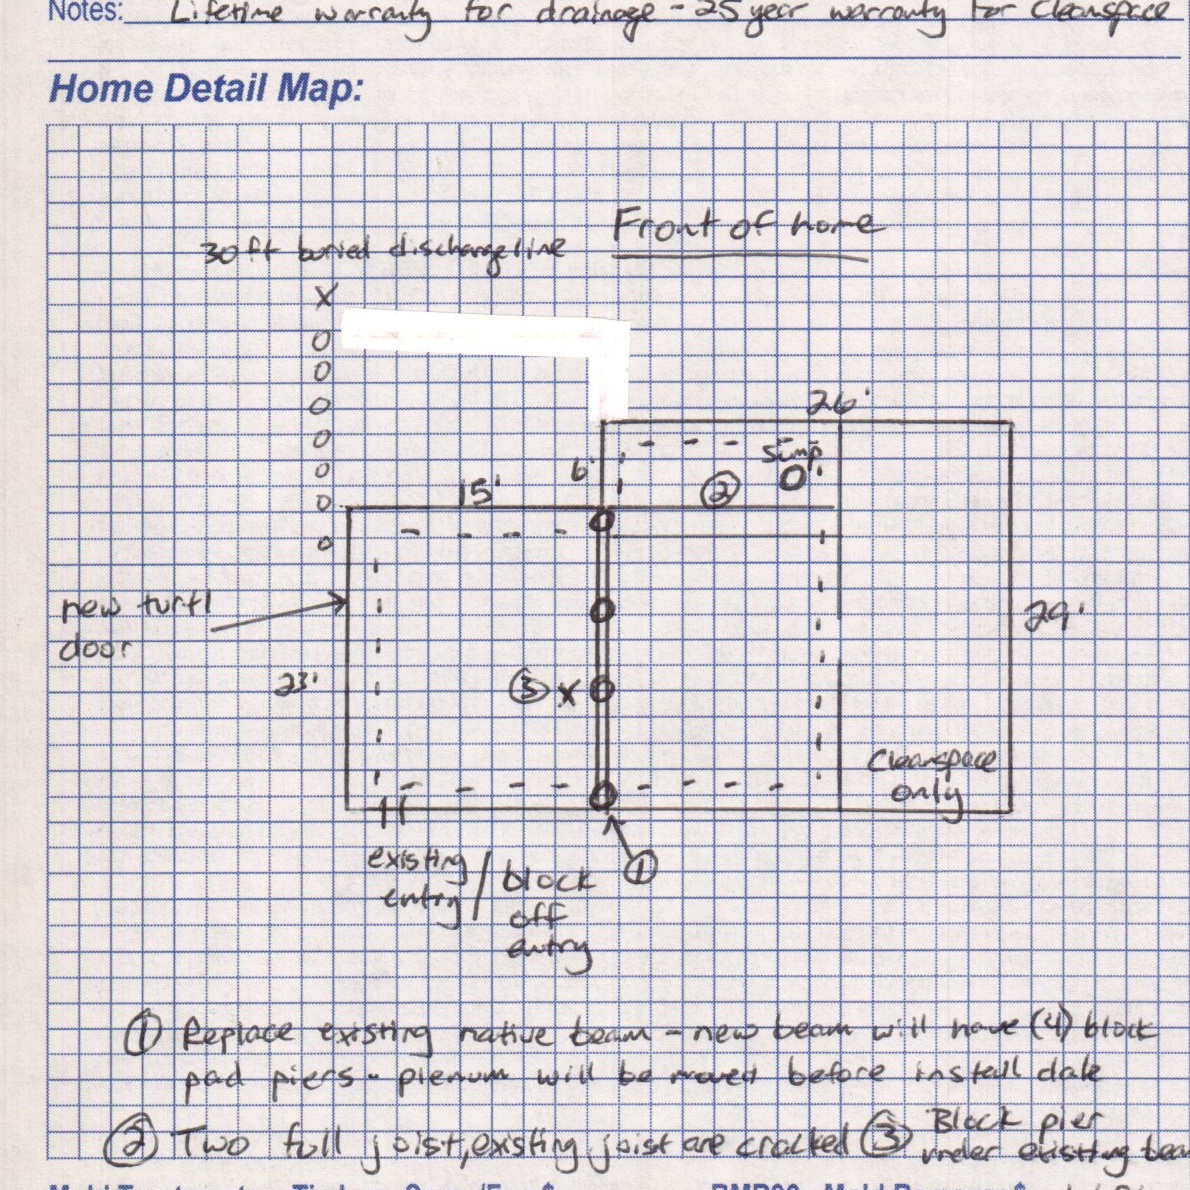 Notes: Lifetime warranty for drainage - 25 year warranty for Cleanspace
Home Detail Map:
Front of home
30 ft buried discharge line
X
26'
6'
sump
15'
②
new turtl
door
29'
23'
③ X
Cleanspace
only
①
existing
entry / block
off
entry
① Replace existing native beam - new beam will have (4) block
pad piers - plenum will be moved before install date
② Two full joist, existing joist are cracked ③ Block pier
under existing beam